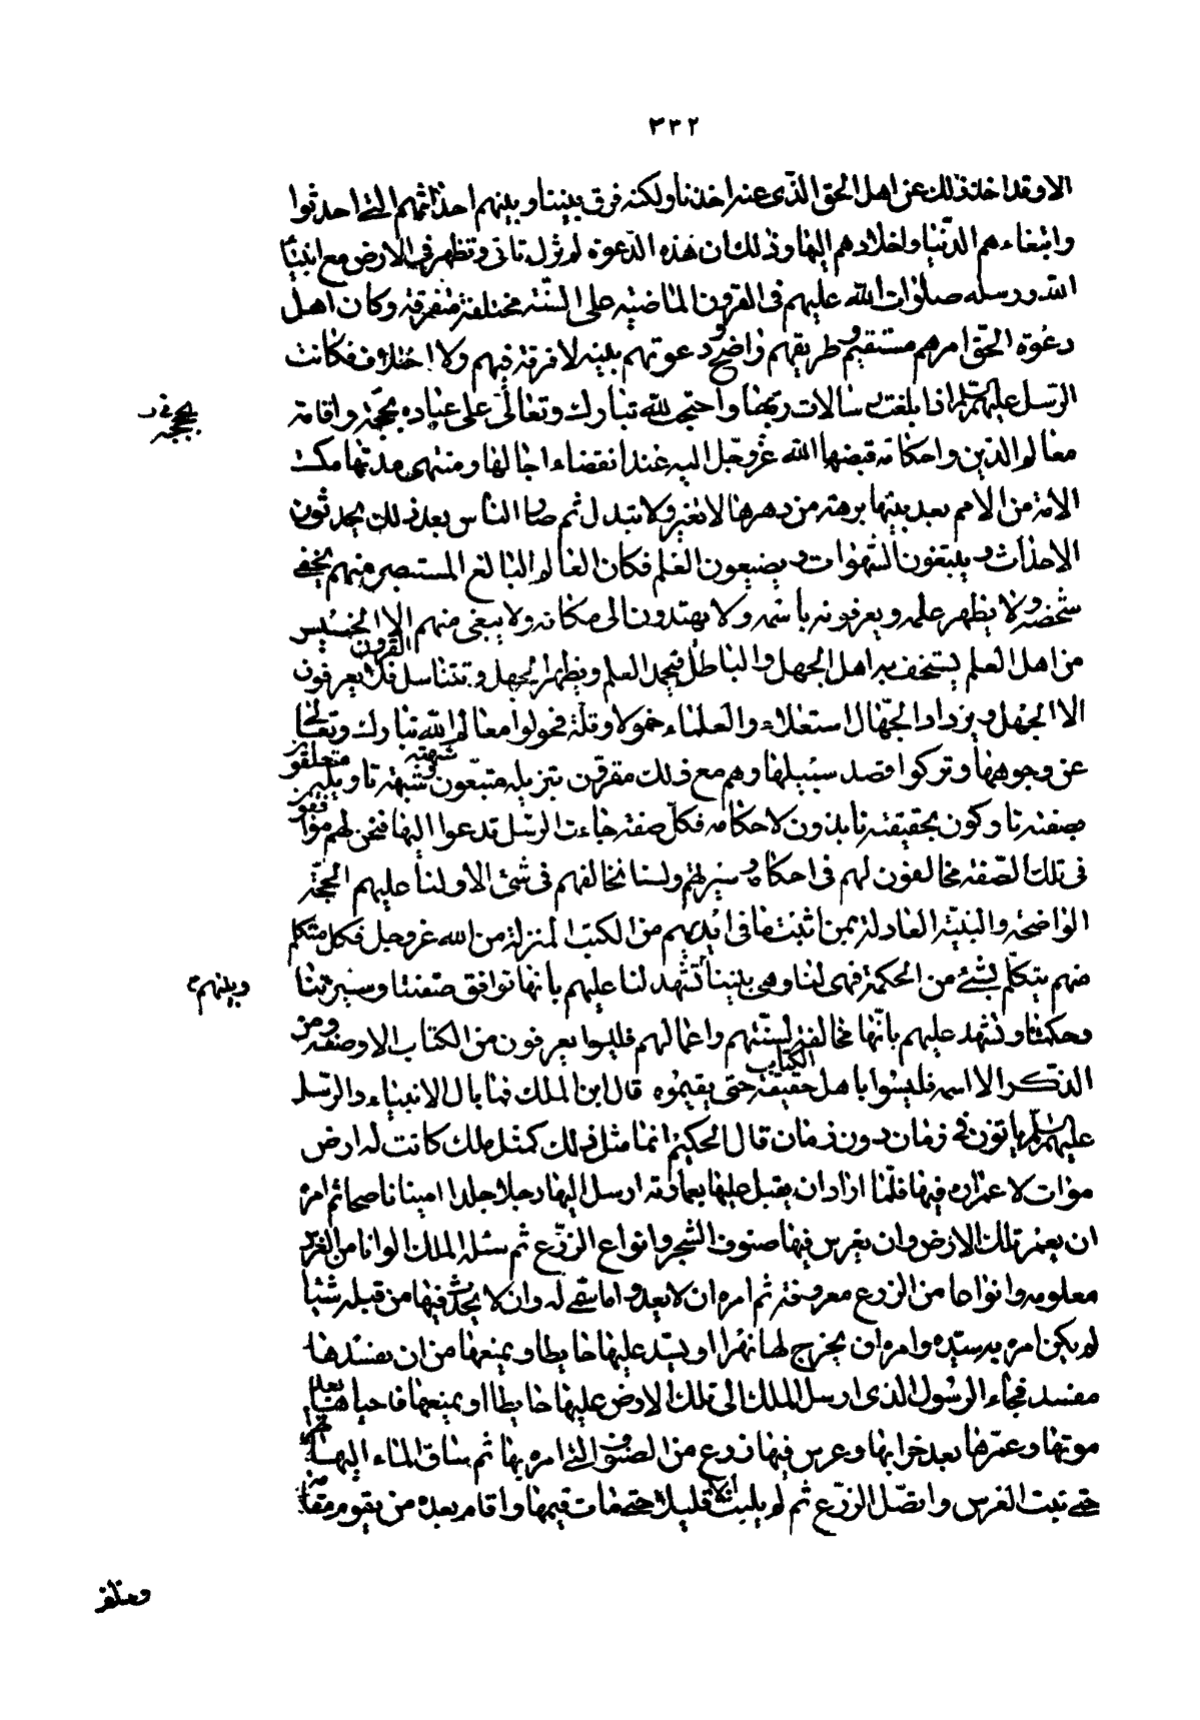 ٣٣٢
الا وقد اخذ ذلك عن اهل الحق الذى عنه اخذنا ولكنه فرق بيننا وبينهم احداثهم التى احدثوا
وابتغاءهم الدنيا واخلادهم اليها وذلك ان هذه الدعوة لم تزل تاتى وتظهر فى الارض مع انبياء
الله ورسله صلوات الله عليهم فى القرون الماضية على السنة مختلفة متفرقة وكان اهل
دعوة الحق امرهم مستقيم وطريقهم واضح ودعوتهم بينه لا فرقة فيهم ولا اختلاف فكانت
الرسل عليهم السلم اذا بلغت رسالات ربها واحتج لله تبارك وتعالى على عباده بحجة واقامة
بحججه
معالم الدين واحكامه قبضها الله عز وجل اليه عند انقضاء اجالها ومنتهى مدتها مكث
الامة من الامم بعد نبيها برهة من دهرها لا تغير ولا تبدل ثم صار الناس بعد ذلك يحدثون
الاحداث ويبتغون الشهوات ويضيعون العلم فكان العالم البالغ المستبصر منهم يخفى
شخصه ولا يظهر علمه ويعرفونه باسمه ولا يهتدون الى مكانه ولا يبقى منهم الا الخسيس
من اهل العلم يستخف به اهل الجهل والباطل فيخمل العلم ويظهر الجهل وتتناسل القرون فلا يعرفون
الا الجهل ويزداد الجهال استعلاء والعلماء خمولا وقلة فحولوا معالم الله تبارك وتعالى
عن وجوهها وتركوا قصد سبيلها وهم مع ذلك مقرون بتنزيله متبعون شبهته تاويله متعلقون
بصفته تاركون بحقيقته نابذون لاحكامه فكل صفة جاءت الرسل تدعوا اليها فنحن لهم موافقون
فى تلك الصفة مخالفون لهم فى احكامهم وسيرتهم ولسنا نخالفهم فى شئ الا ولنا عليهم الحجة
الواضحة والبينة العادلة بمن اثبت ما فى ايديهم من الكتب المنزلة من الله عز وجل فكل متكلم
منهم يتكلم بشئ من الحكمة فهى لنا وهى بيننا تشهد لنا عليهم بانها توافق صفتنا وسيرتنا
وبينهم
وحكمنا وتشهد عليهم بانها مخالفة لسنتهم واعمالهم فليسوا يعرفون من الكتاب الا وصفه ومن
الذكر الا اسمه فليسوا باهل الكتاب حقيقة حتى يقيموه قال ابن الملك فما بال الانبياء والرسل
عليهم السلم ياتون فى زمان دون زمان قال الحكيم انما مثل ذلك كمثل ملك كانت له ارض
موات لا عمران فيها فلما اراد ان يقبل عليها بعمارته ارسل اليها رجلا جلدا امينا ناصحا ثم امره
ان يعمر تلك الارض وان يغرس فيها صنوف الشجر وانواع الزرع ثم سئله الملك الوانا من الغرس
معلومه وانواعا من الزرع معروفة ثم امره ان لا يعدو ما سمى له وان لا يحدث فيها من قبله شيئا
لم يكن امره به سيده وامره ان يخرج لها نهرا ويسد عليها حايطا ويمنعها من ان يفسدها
مفسد فجاء الرسول الذى ارسله الملك الى تلك الارض فاحياها بعد
موتها وعمرها بعد خرابها وغرس فيها وزرع من الصنوف التى امره بها ثم ساق الماء اليها
حتى نبت الغرس واتصل الزرع ثم لم يلبث الا قليلا حتى مات قيمها واقام بعده من يقوم مقامه